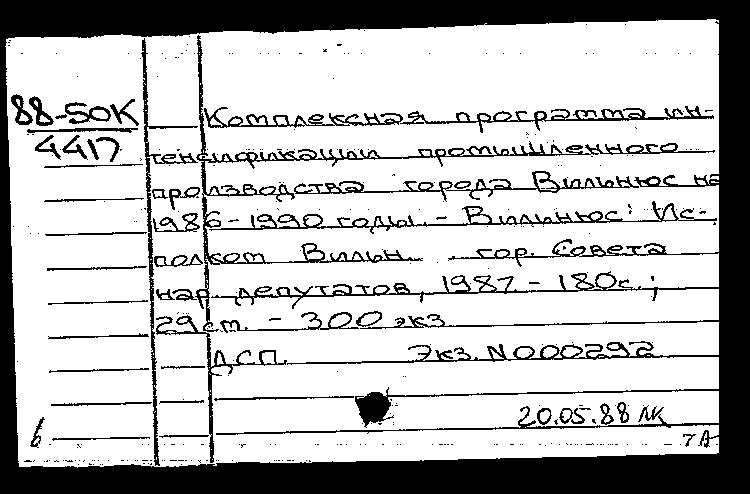 88-50К
4417
Комплексная программа ин-
тенсификации промышленного
производства города Вильнюс на
1986-1990 годы. - Вильнюс: Ис-
полком Вильн. гор. Совета
нар. депутатов, 1987 - 180с.;
29 см. - 300 экз
ДСП. Экз. N000292
20.05.88